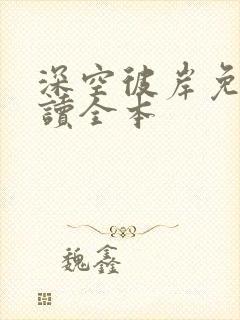 深空彼岸免
讀全本
魏鑫